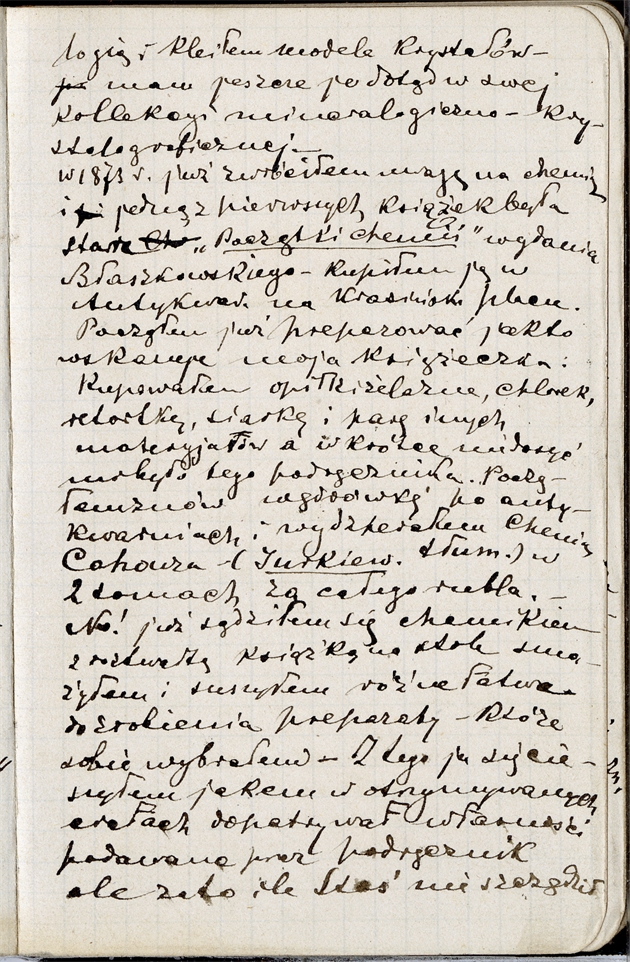 logię i kleiłem modele kryształów –
mam jeszcze po dotąd w swej
kollekcyi mineralogiczno – kry-
stalograficznej –
w 1873 r. już zwróciłem uwagę na chemię
i jedną z pierwszych książek była
stara „Początki chemii" wydania
Błaszkowskiego – kupiłem ją w
Antykwar. na Krasińskim placu.
Począłem już preparować jak to
wskazuje moja książeczka:
Kupowałem opiłki żelazne, chlorek,
retortkę, siarkę i parę innych
materyjałów a wkrótce niedosyć
mi było tego podręcznika. Począ-
łem znów wędrówkę po anty-
kwarniach i wydzierałem Chemię
Cahourza – (Jurkiew. tłum.) w
2 tomach za całego rubla. –
No! już sądziłem się chemikiem
z roztwartą książką na stole sma-
żyłem i suszyłem różne łatwe
do zrobienia preparaty – które
sobie wybrałem – Z tego ja się cie-
szyłem jakem w otrzymywanych
ciałach dopatrywał własności
podawane przez podręcznik
ale za to ile Staś nie szczędził